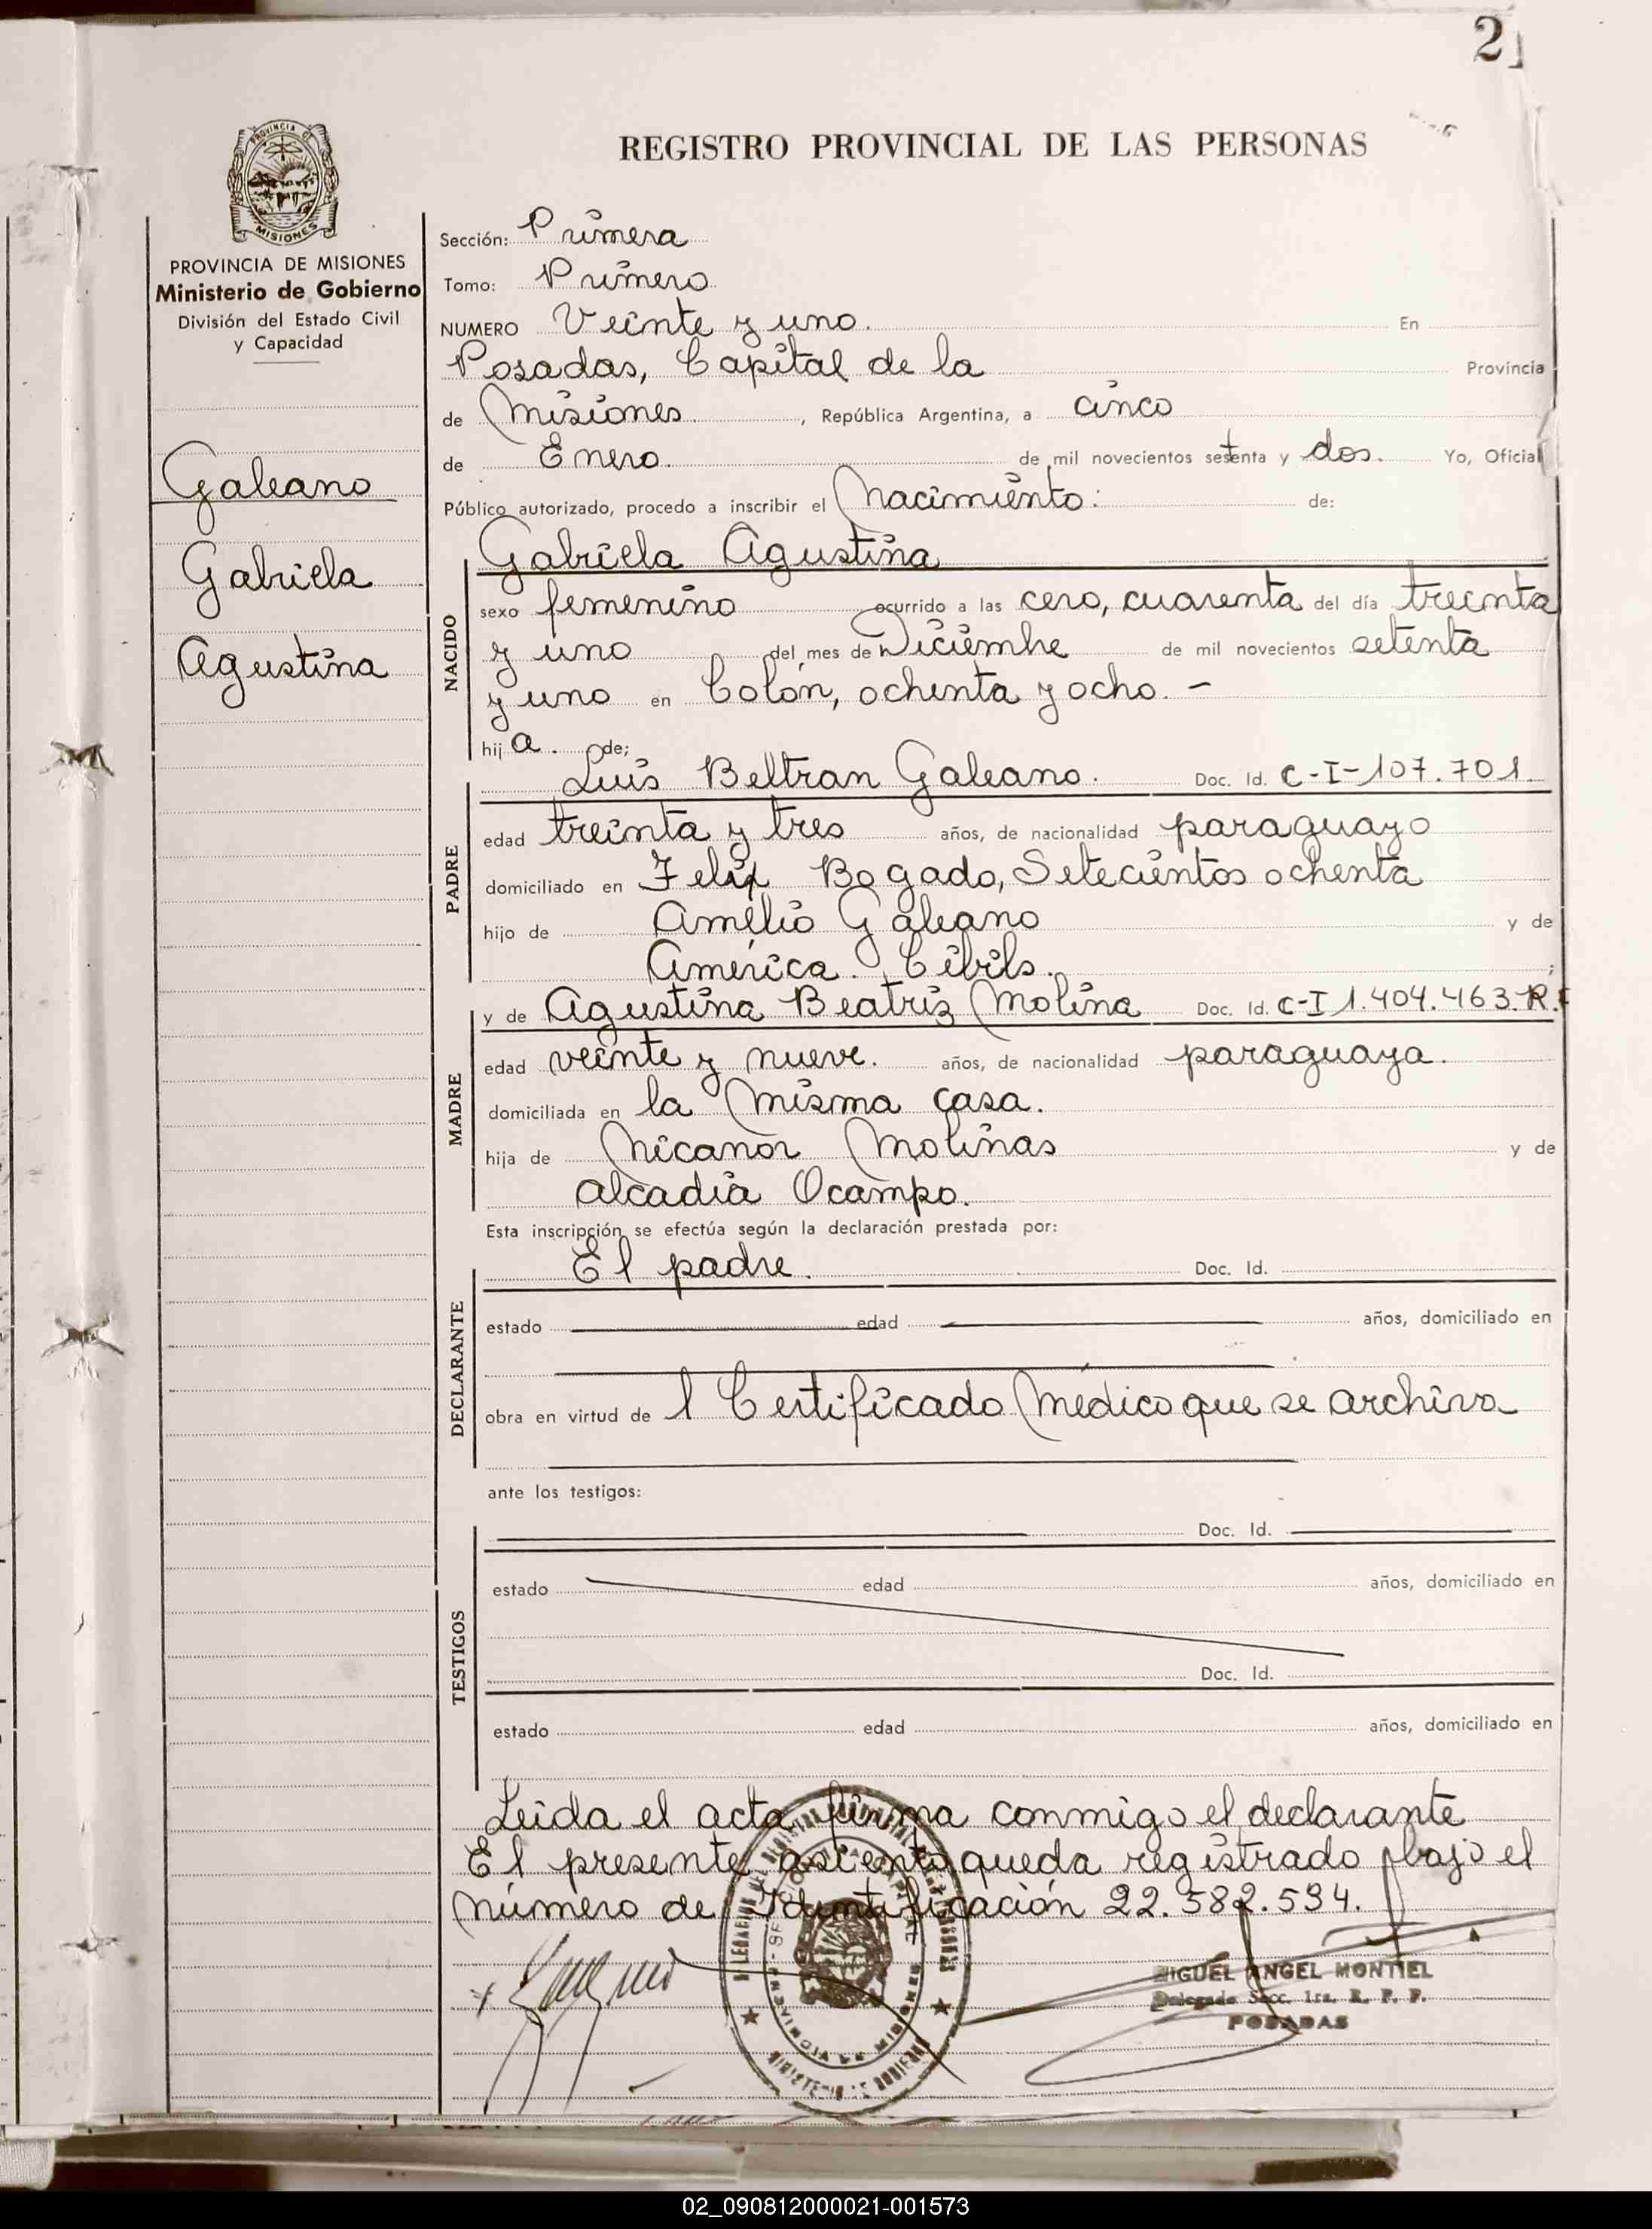 21
REGISTRO PROVINCIAL DE LAS PERSONAS
PROVINCIA DE
MISIONES
PROVINCIA DE MISIONES
Ministerio de Gobierno
División del Estado Civil
y Capacidad
Galeano
Gabriela
Agustina
Sección: Primera
Tomo: Primero
NUMERO Veinte y uno. En
Posadas, Capital de la Provincia
de Misiones , República Argentina, a cinco
de Enero. de mil novecientos setenta y dos. Yo, Oficial
Público autorizado, procedo a inscribir el Nacimiento: de:
NACIDO
Gabriela Agustina
sexo femenino ocurrido a las cero, cuarenta del día treinta
y uno del mes de Diciembre de mil novecientos setenta
y uno en Colón, ochenta y ocho. -
hij a. de;
PADRE
Luis Beltran Galeano. Doc. Id. C-I-107.701
edad treinta y tres años, de nacionalidad paraguayo
domiciliado en Felix Bogado, Setecientos ochenta
hijo de Amelio Galeano y de
America. Cibils. ;
MADRE
y de Agustina Beatriz Molina Doc. Id. C-I 1.404.463.R.
edad veinte y nueve. años, de nacionalidad paraguaya.
domiciliada en la misma casa.
hija de Nicanor Molinas y de
alcadia Ocampo.
Esta inscripción se efectúa según la declaración prestada por:
DECLARANTE
El padre. Doc. Id.
estado edad años, domiciliado en
obra en virtud de l Certificado Médico que se archiva
ante los testigos:
TESTIGOS
Doc. Id.
estado edad años, domiciliado en
Doc. Id.
estado edad años, domiciliado en
Leida el acta, firma conmigo el declarante
El presente asiento queda registrado bajo el
número de Identificación 22.582.534.
MIGUEL ANGEL MONTIEL
Delegado Secc. 1ra. R. P. P.
POSADAS
02_090812000021-001573